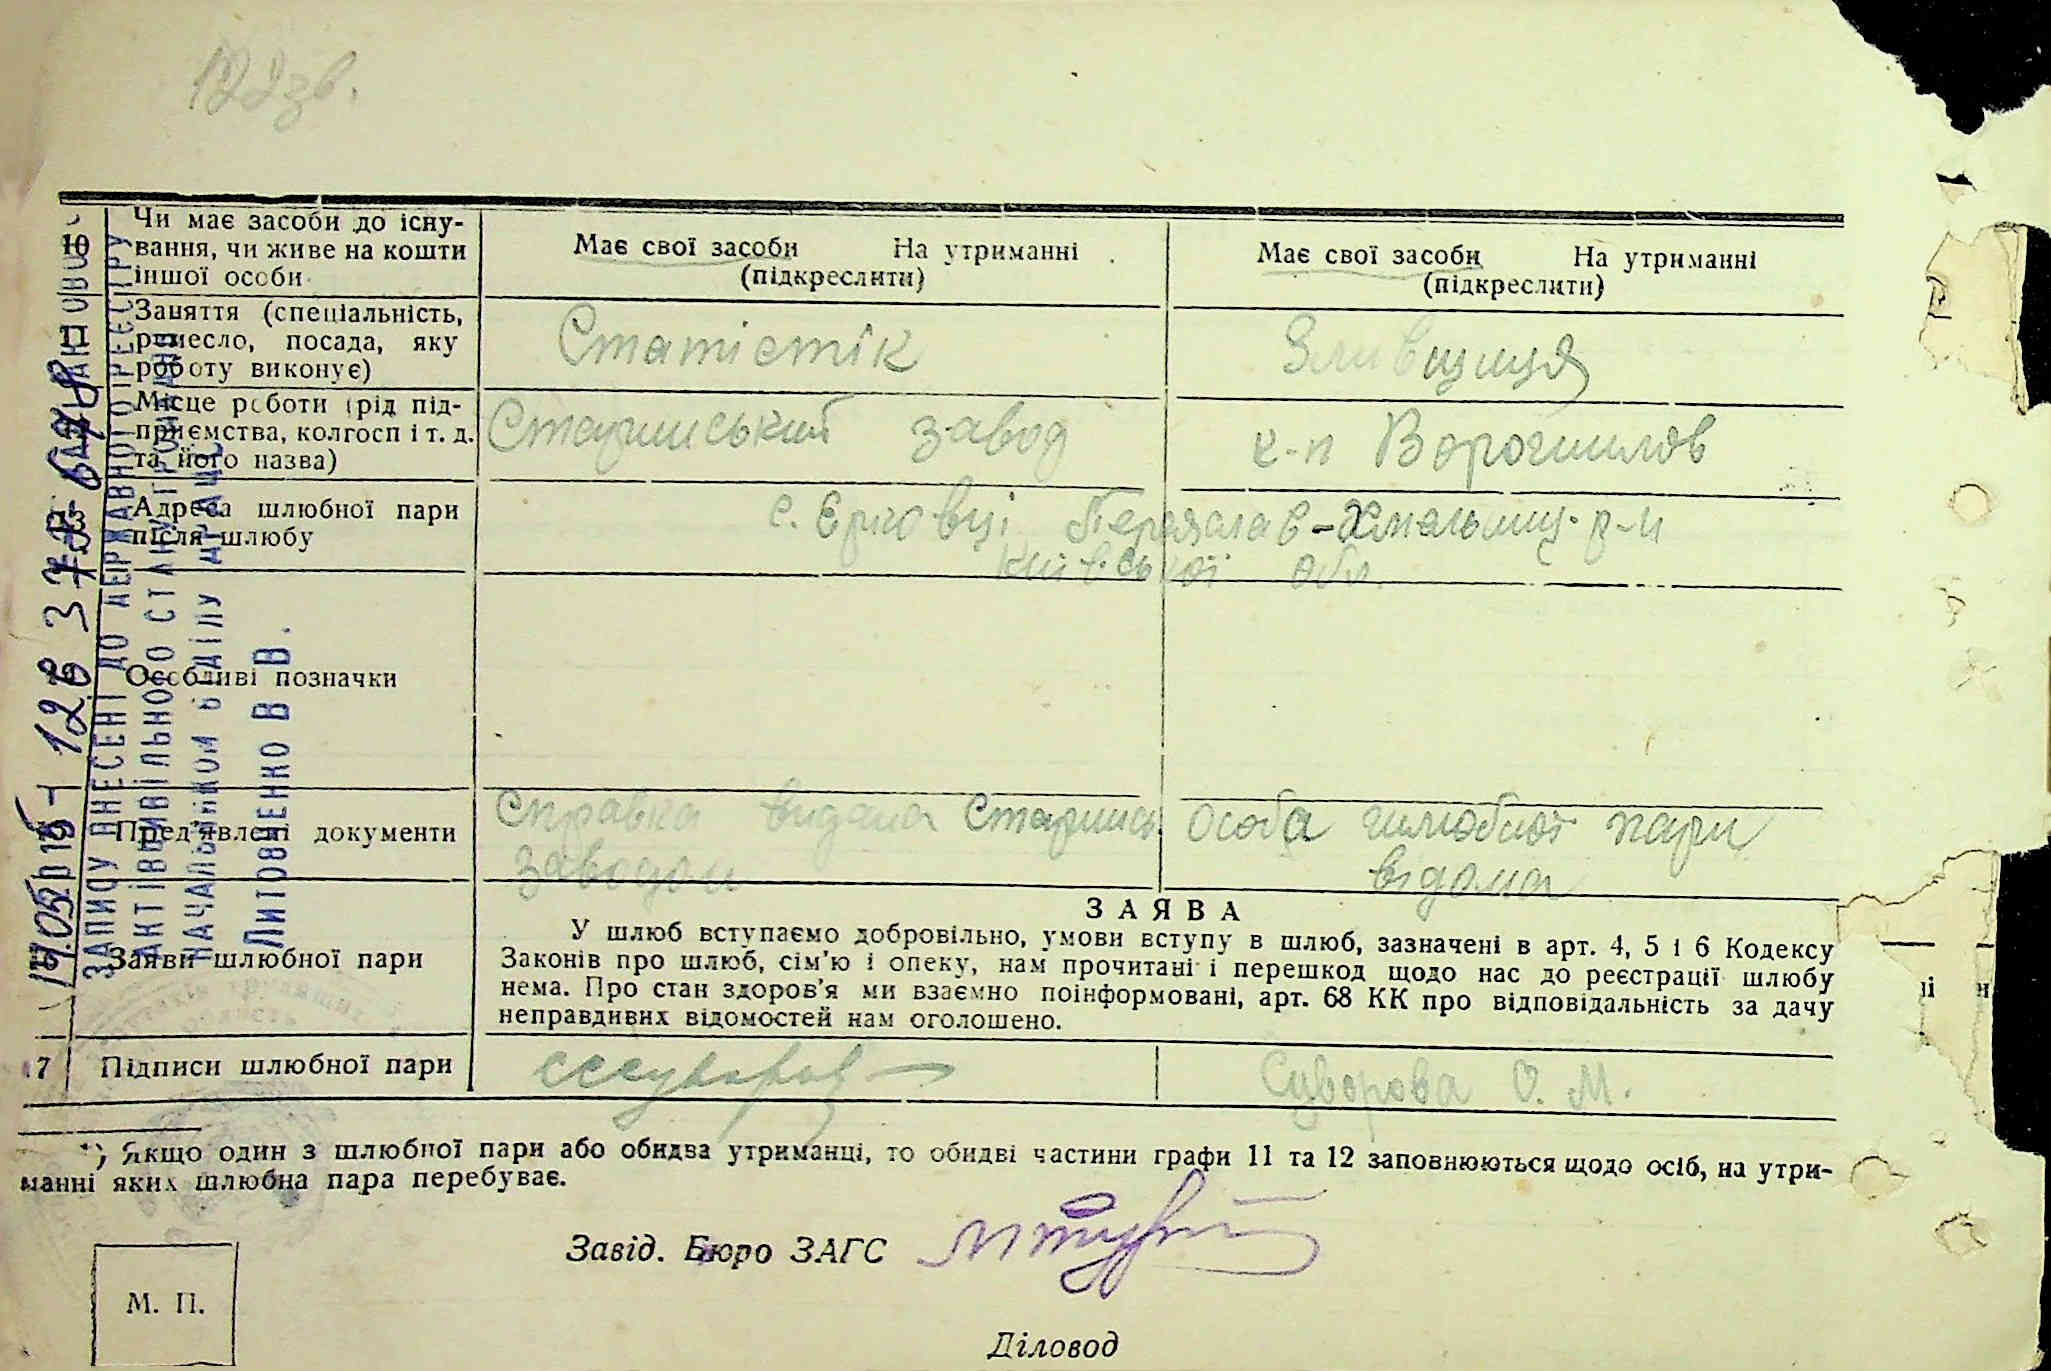 122зв.
10 Чи має засоби до існу- Має свої засоби На утриманні Має свої засоби На утриманні
вання, чи живе на кошти (підкреслити) (підкреслити)
іншої особи
11 Заняття (спеціальність, Статістік Зливщиця
ремесло, посада, яку
роботу виконує)
Місце роботи (рід під- завод к-п Ворошилов
приємства, колгосп і т. д.
та його назва)
Адреса шлюбної пари с. Єрковці Переяслав-Хмельниц. р-н
після шлюбу Київської обл.
Особливі позначки
Пред'явлені документи Справка видана Особа шлюбної пари
заводом відома
ЗАЯВА
Заяви шлюбної пари У шлюб вступаємо добровільно, умови вступу в шлюб, зазначені в арт. 4, 5 і 6 Кодексу
Законів про шлюб, сім'ю і опеку, нам прочитані і перешкод щодо нас до реєстрації шлюбу
нема. Про стан здоров'я ми взаємно поінформовані, арт. 68 КК про відповідальність за дачу
неправдивих відомостей нам оголошено.
17 Підписи шлюбної пари Суворова О. М.
*) Якщо один з шлюбної пари або обидва утриманці, то обидві частини графи 11 та 12 заповнюються щодо осіб, на утри-
манні яких шлюбна пара перебуває.
Завід. Бюро ЗАГС
М. П.
Діловод
ЗАПИСИ ВНЕСЕНІ ДО ДЕРЖАВНОГО РЕЄСТРУ
АКТІВ ЦИВІЛЬНОГО СТАНУ ГРОМАДЯН
НАЧАЛЬНИКОМ ВІДДІЛУ ДРАЦС
Литовченко В В.